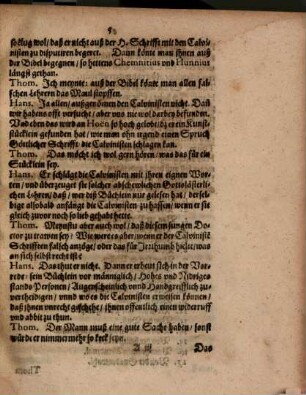 so klug wol / daß er nicht auß der H. Schrifft mit den Calvi-
nisten zu disputiren begeret. Dann könte man ihnen auß
der Bibel begegnen / so hettens Chemnitius und Hunnius
längst gethan.
Thom. Ich meynte: auß der Bibel könte man allen fal-
schen Lehrern das Maul stopffen.
Hans. Ja allen / außgenom̃en den Calvinisten nicht. Daß
wir habens offt versucht / aber uns nie wol darbey befunden.
Und eben das wird an Hoen so hoch gelobt / dz er ein Kunst-
stücklein gefunden hat / wie man ohn irgend einen Spruch
Göttlicher Schrifft / die Calvinisten schlagen kan.
Thom. Das möcht ich wol gern hören / was das für ein
Stücklein sey.
Hans. Er schlägt die Calvinisten mit ihren eignen Wor-
ten / und überzeuget sie solcher abschewlichen Gottslästerli-
chen Lehren / daß / wer diß Büchlein nur gelesen hat / der sel-
bige alsobald anfängt die Calvinisten zu hassen / wenn er sie
gleich zuvor noch so lieb gehabt hette.
Thom. Meynstu aber auch wol / daß diesem jungen Do-
ctor zu trawen sey / Wie were es aber / wenn er der Calvinisten
Schrifften falsch anzöge / oder das für Irrthumb hielte / was
an sich selbst recht ist?
Hans. Das thut er nicht. Dann er erbeut sich in der Vor-
rede / sein Büchlein vor männiglich / Hohes und Nidriges
stands Personen / Augenscheinlich und Handgreifflich zu-
vertheidigen / unnd wo es die Calvinisten erweisen können /
daß ihnen unrecht geschehe / ihnen öffentlich einen widerruff
und abbit zu thun.
Thom. Der Mann muß eine gute Sache haben / sonst
würde er nimmermehr so keck seyn.
A iij Das